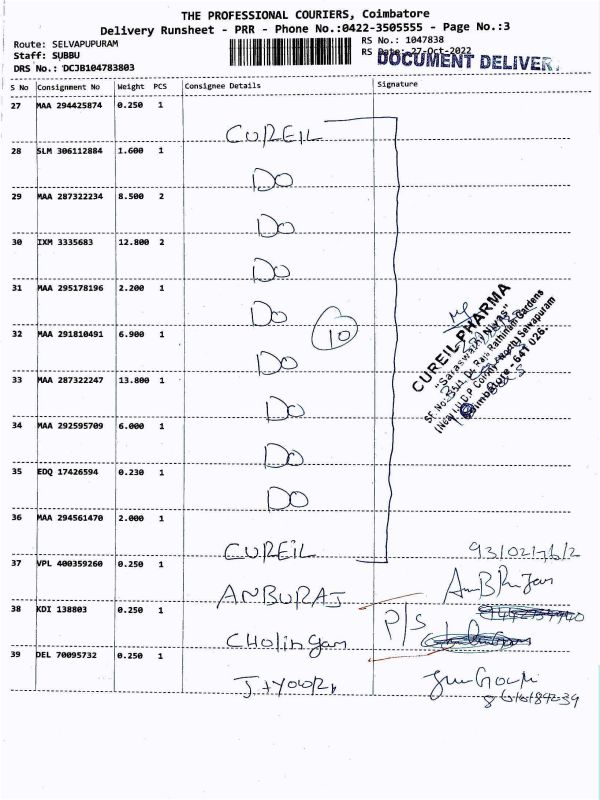 THE PROFESSIONAL COURIERS, Coimbatore
Delivery Runsheet - PRR - Phone No.:0422-3505555 - Page No.:3
Route: SELVAPUPURAM
Staff: SUBBU
DRS No.: DCJB104783803
RS No.: 1047838
RS Date: 27-Oct-2022
DOCUMENT DELIVER
S No Consignment No Weight PCS Consignee Details Signature
27 MAA 294425874 0.250 1
CUREIL
28 SLM 306112884 1.600 1
DO
29 MAA 287322234 8.500 2
DO
30 IXM 3335683 12.800 2
DO
31 MAA 295178196 2.200 1
DO
10
32 MAA 291810491 6.900 1
DO
33 MAA 287322247 13.800 1
DO
34 MAA 292595709 6.000 1
DO
35 EDQ 17426594 0.230 1
DO
36 MAA 294561470 2.000 1
CUREIL
CUREIL PHARMA
"Saraswathi Nivas"
SF.No: Raja Rathinam Gardens
(Near) Selvapuram
Coimbatore - 641 026.
37 VPL 400359260 0.250 1
ANBURAJ
38 KDI 138803 0.250 1
P/S
CHOlingam
39 DEL 70095732 0.250 1